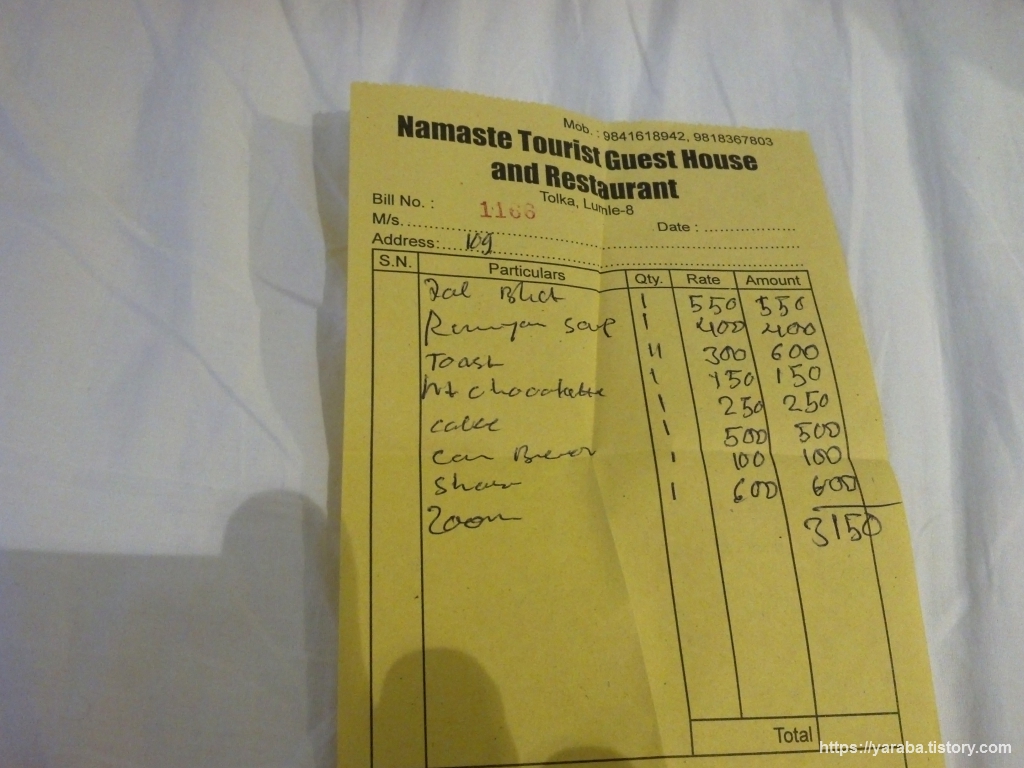 Mob. : 9841618942, 9818367803
Namaste Tourist Guest House
and Restaurant
Tolka, Lumle-8
Bill No. : 1168
M/s. Date :
Address: 109
S.N. Particulars Qty. Rate Amount
Dal Bhat 1 550 550
soup 1 400 400
Toast 11 300 600
Hot chocolatte 1 150 150
cake 1 250 250
can Beer 1 500 500
Shower 1 100 100
Room 1 600 600
3150
Total
https://yaraba.tistory.com